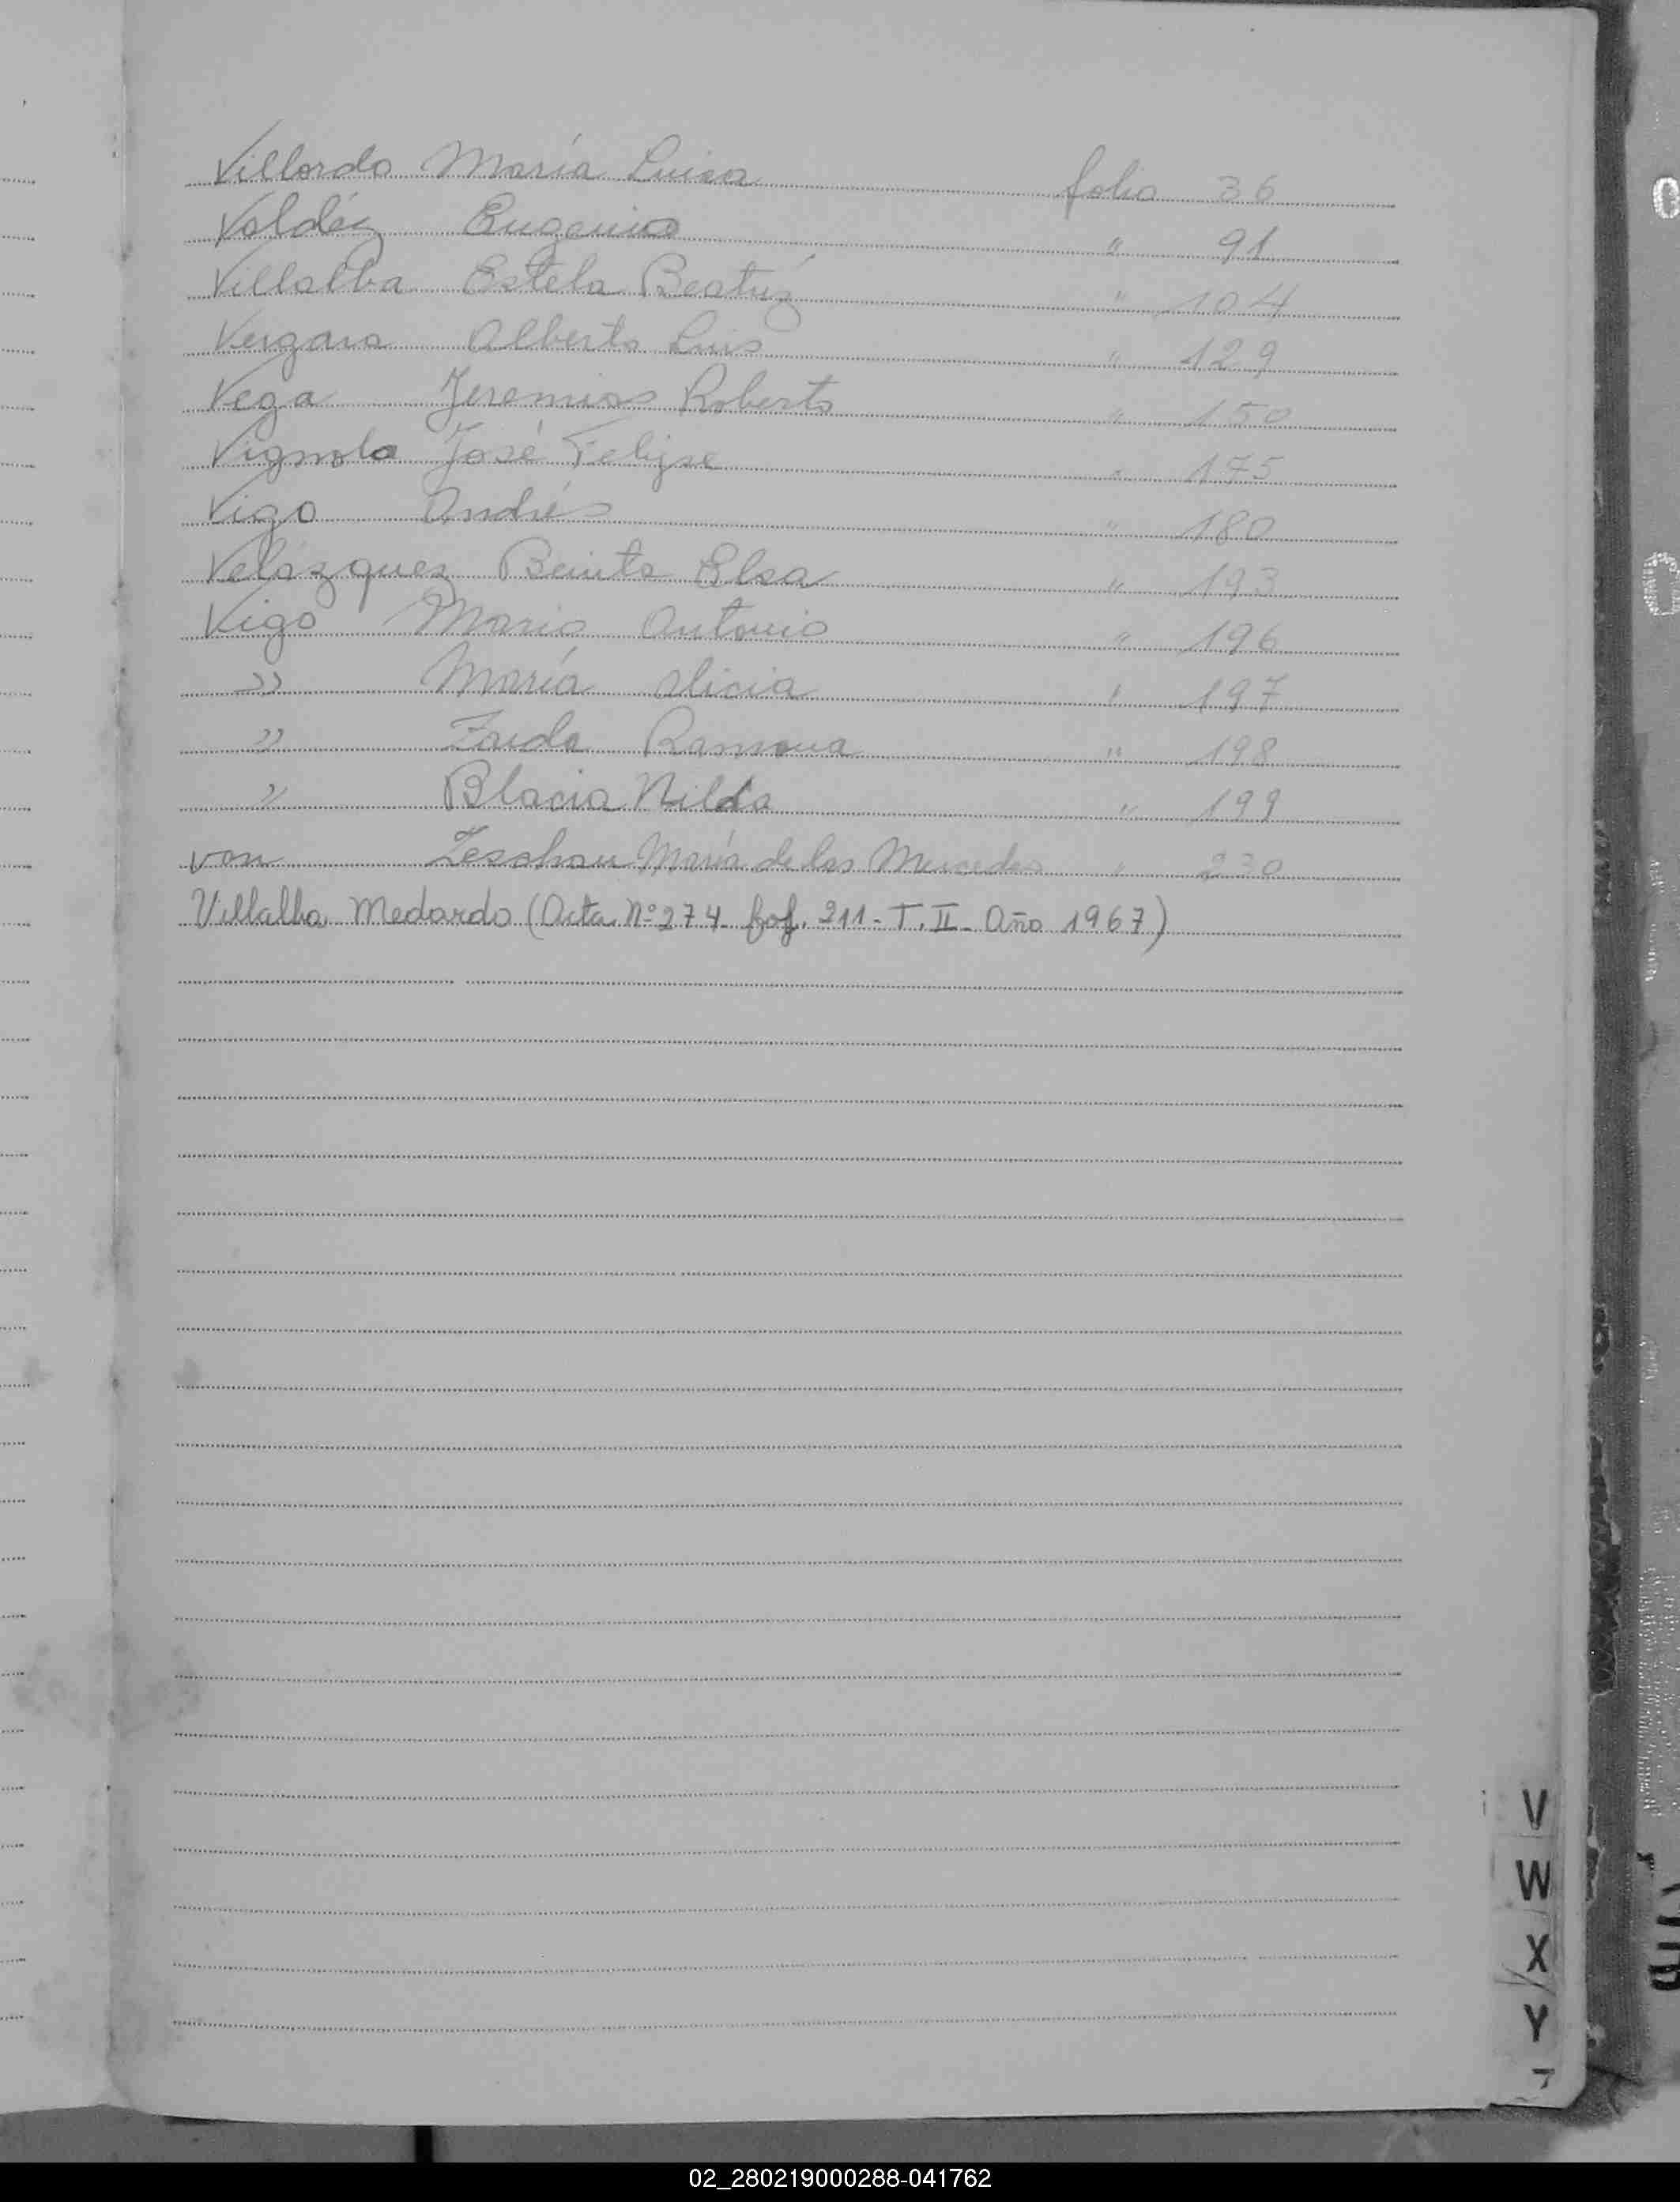 Villordo María Luisa folio 36
Valdéz Eugenio " 91
Villalba Estela Beatríz " 104
Vergara Alberto Luis " 129
Vega Jeremias Roberto " 150
Vignolo José Felipe " 175
Vigo Andrés " 180
Velázquez Benita Elsa " 193
Vigo Mario Antonio " 196
" María Alicia " 197
" Zaida Ramona " 198
" Blacia Nilda " 199
von Zeschau María de las Mercedes " 230
Villalba Medardo (Acta Nº 274 fof. 211- T. II- Año 1967)
V
W
X
Y
02_280219000288-041762